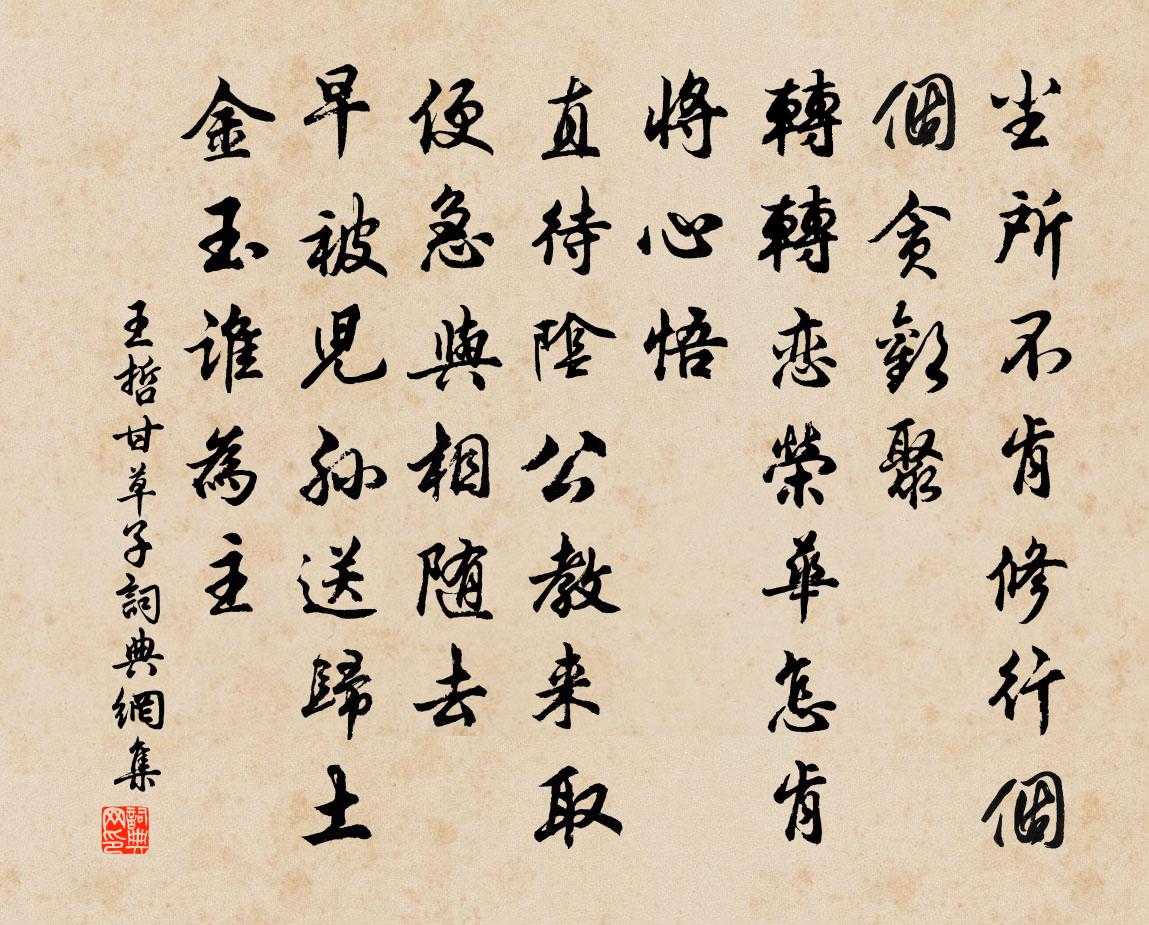 尘所不肯修行個
個貪歡聚
轉轉恋榮華怎肯
將心悟
直待陰公教来取
便急與相随去
早被児孫送歸土
金玉誰為主
王哲甘草子詞典網集
詞典
网印